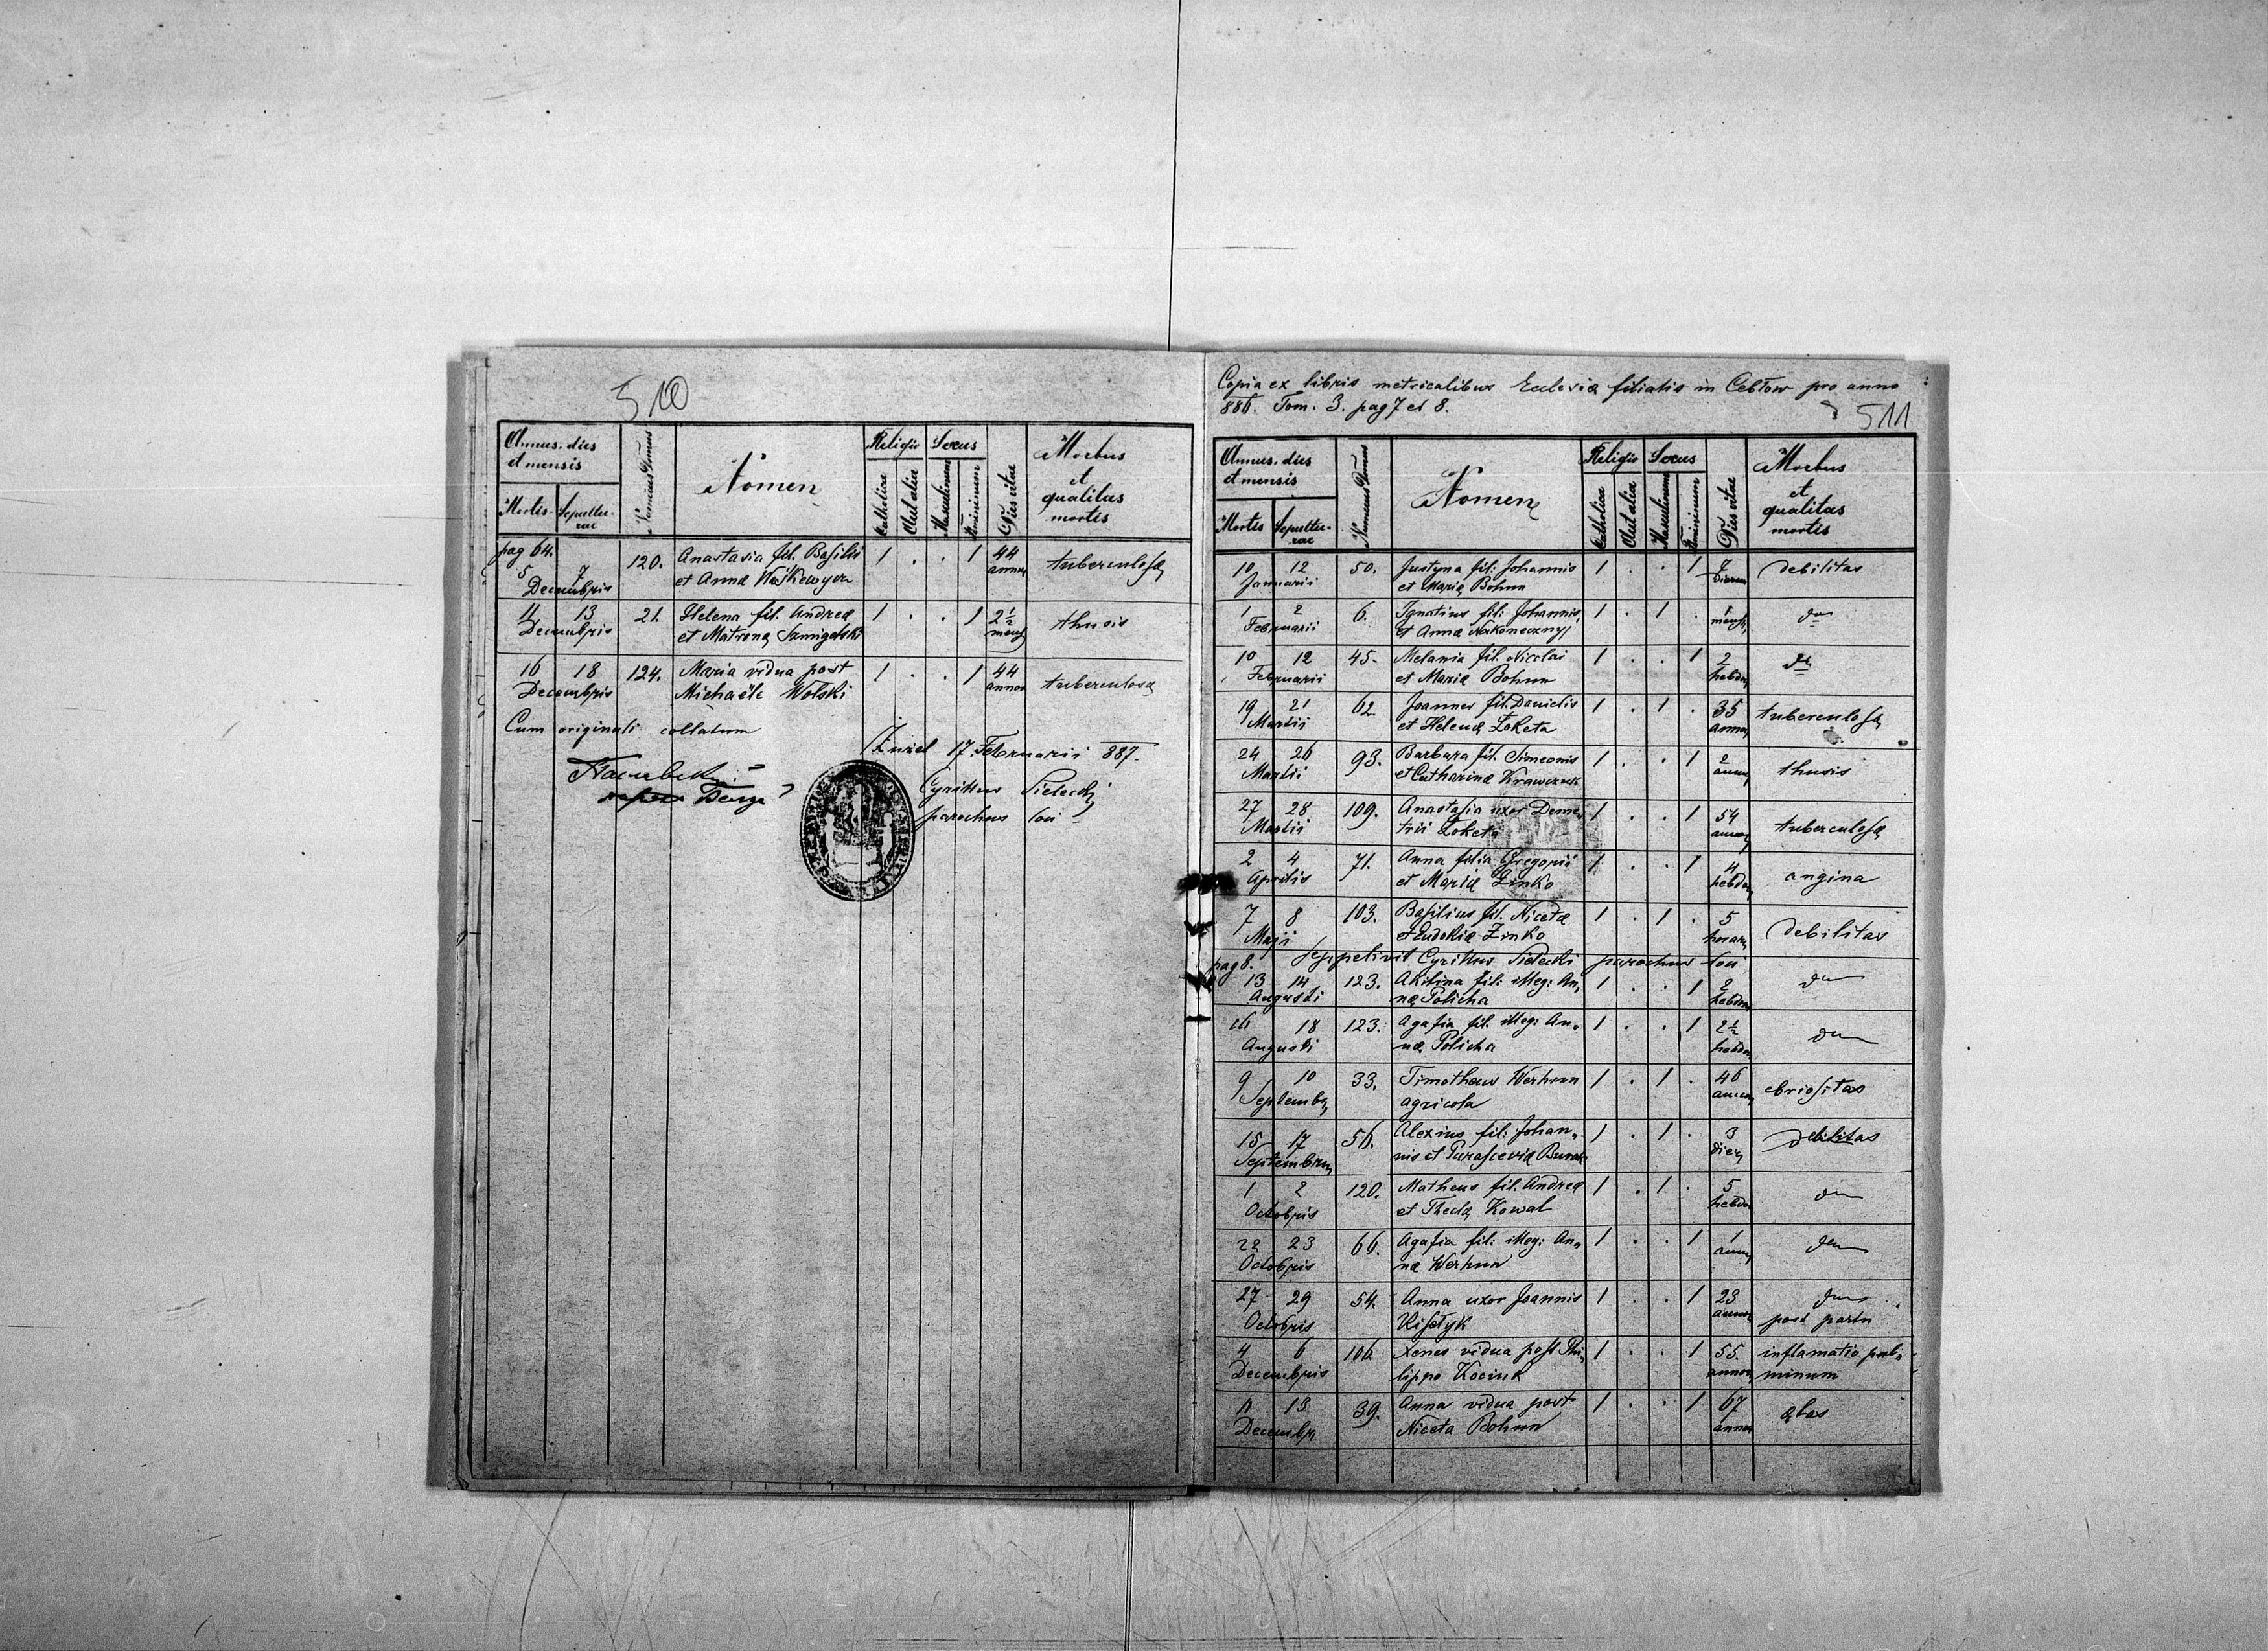 510
Annus, dies
et mensis
Mortis
Sepultu-
rae
Numerus Domus
Nomen
Religio
Catholica
Aut alia
Sexus
Masculinum
Femininum
Dies vitae
Morbus
et
qualitas
mortis
pag 64.
5 7 120. Anastasia fil. Basilii 1 . . 1 44
Decembris et Annæ annor tuberculosa
11 13 21. Helena fil. Andreæ 1 . . 1 2½
Decembris et Matronæ mens thusis
16 18 124. Maria vidua post 1 . . 1 44
Decembris Michaële Wolski annor tuberculosa
Cum originali collatum
17 Februarii 887.
Cyrillus Sielecki
parochus loci
Copia ex libris metricalibus Ecclesiæ filialis in Cebłow pro anno
886. Tom. 3. pag 7 et 8.
511
Annus, dies
et mensis
Mortis
Sepultu-
rae
Numerus Domus
Nomen
Religio
Catholica
Aut alia
Sexus
Masculinum
Femininum
Dies vitae
Morbus
et
qualitas
mortis
10 12 50. Justyna fil: Johannis 1 . . 1 7 debilitas
Januarii et Mariæ Bohun dierum
1 2 6. Ignatius fil: Johannis 1 . 1 . 1 dto
Februarii et Annæ Nakoneczny mens
10 12 45. Melania fil. Nicolai 1 . . 1 2 dto
Februarii et Mariæ Bohun hebdom
19 21 62. Joannes fil. Danielis 1 . 1 . 35 tuberculosa
Martii et Helenæ Loketa annor
24 26 93. Barbara fil. Simeonis 1 . . 1 2 thusis
Martii et Catharinæ Krawczuk annor
27 28 109. Anastasia uxor Deme- 1 . . 1 54 tuberculosa
Martii trii Loketa annor
2 4 71. Anna filia Gregorii 1 . . 1 4 angina
Aprilis et Mariæ Zinko hebdom
7 8 103. Basilius fil. Nicetæ 1 . 1 . 5 debilitas
Maji et Eudokiæ Zinko horar
pag 8. Seppelivit Cyrillus Sielecki parochus loci
13 14 123. Akilina fil: illeg: An- 1 . . 1 2 dto
Augusti næ Policha hebdom
16 18 123. Agafia fil. illeg: An- 1 . . 1 2½ dto
Augusti næ Policha hebdom
9 10 33. Timotheus Werhun 1 . 1 . 46 ebriositas
Septembr agricola annor
15 17 56. Alexius fil: Johan- 1 . 1 . 3 debilitas
Septembris nis et Parasceviæ dier
1 2 120. Matheus fil. Andreæ 1 . 1 . 5 dto
Octobris et Theclæ Kowal hebdom
22 23 66. Agafia fil: illeg: An- 1 . . 1 1 dto
Octobris næ Werhun anni
27 29 54. Anna uxor Joannis 1 . . 1 23 dto
Octobris Kisełyk annor post partu
4 6 106. Xenes vidua post Phi- 1 . . 1 55. inflamatio pul-
Decembris lippo Kociuk annor minum
11 13 39. Anna vidua post 1 . . 1 67 ætas
Decembr Niceta Bohun annor